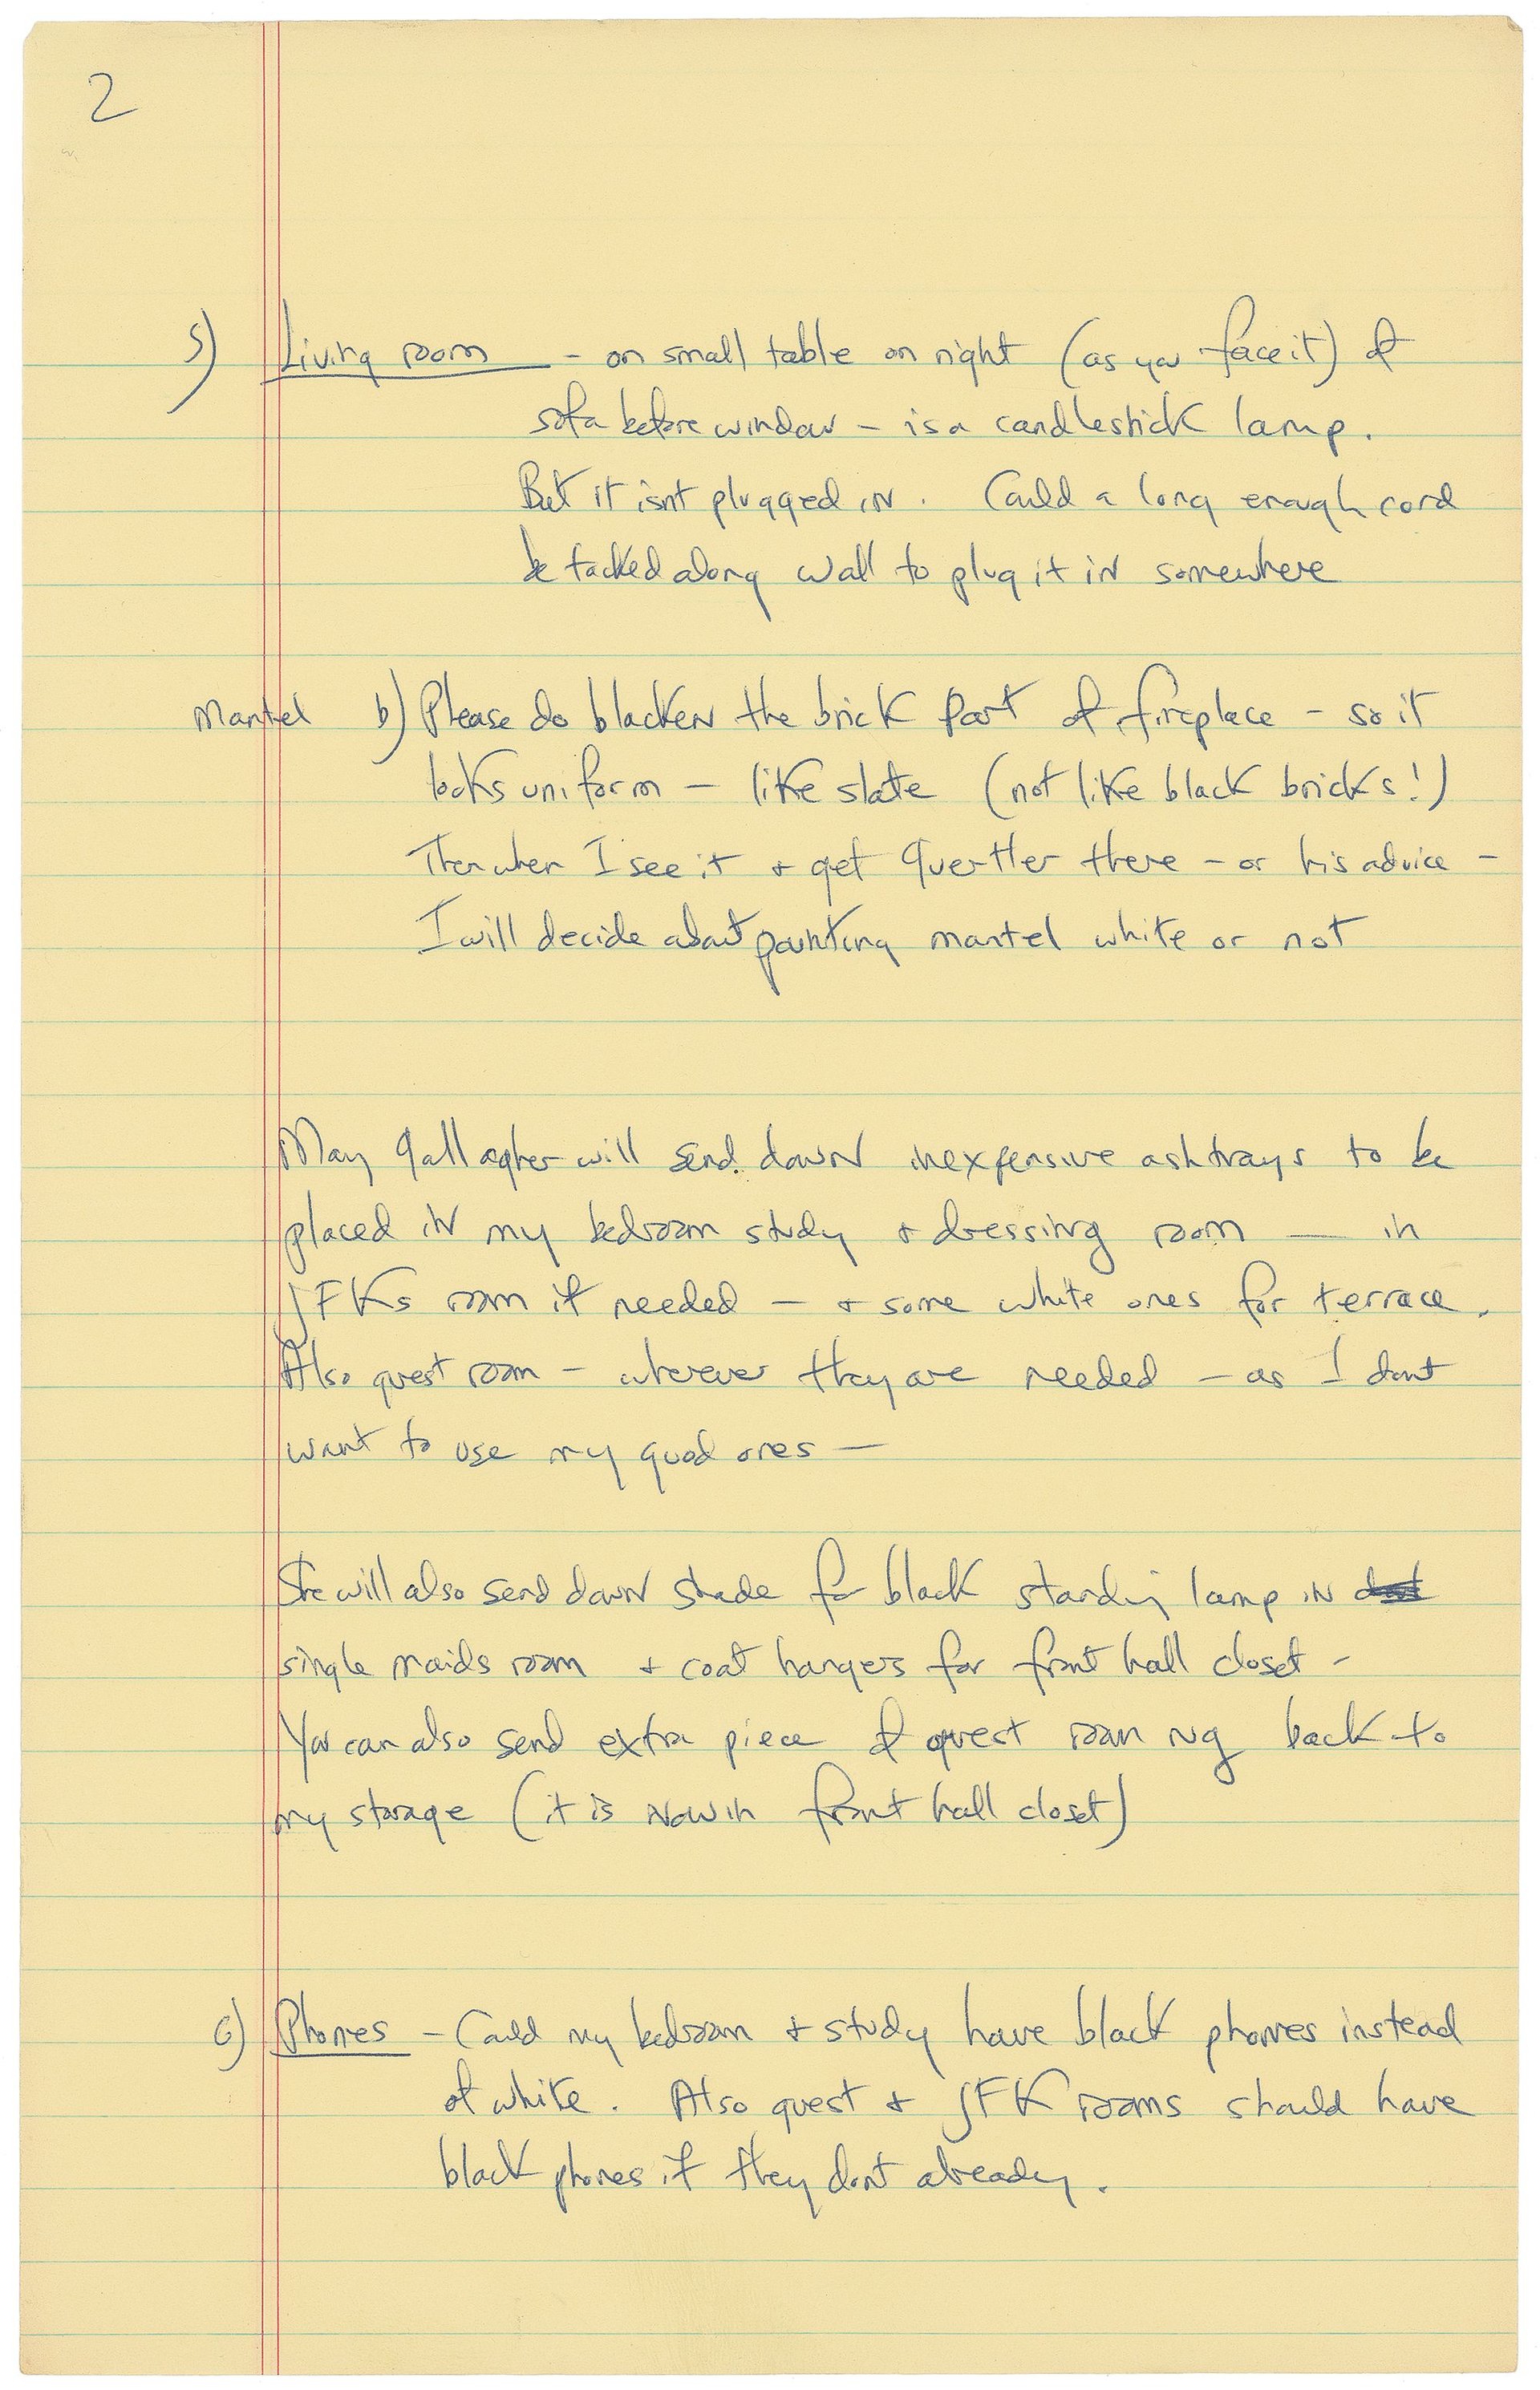 2
5) Living room - on small table on right (as you face it) of
sofa before window - is a candlestick lamp.
But it isnt plugged in. Could a long enough cord
be tacked along wall to plug it in somewhere
Mantel b) Please do blacken the brick part of fireplace - so it
looks uniform - like slate (not like black bricks!)
Then when I see it + get Guertler there - or his advice -
I will decide about painting mantel white or not
Mary Gallagher will send down inexpensive ashtrays to be
placed in my bedroom study + dressing room — in
JFKs room if needed - + some white ones for terrace.
Also guest room - wherever they are needed - as I dont
want to use my good ones —
She will also send down shade for black standing lamp in
single maids room + coat hangers for front hall closet -
You can also send extra piece of guest room rug back to
my storage (it is now in front hall closet)
6) Phones - Could my bedroom + study have black phones instead
of white. Also guest + JFK rooms should have
black phones if they dont already.